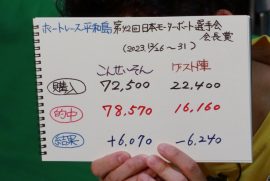 ボートレース平和島 第42回日本モーターボート選手会
会長賞
(2023.12/26~31)
こんせいそん ゲスト陣
購入 72,500 22,400
的中 78,570 16,160
結果 +6,070 -6,240